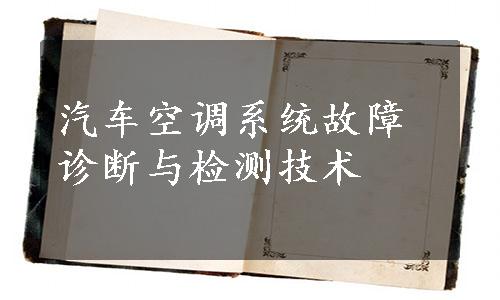 汽车空调系统故障
诊断与检测技术